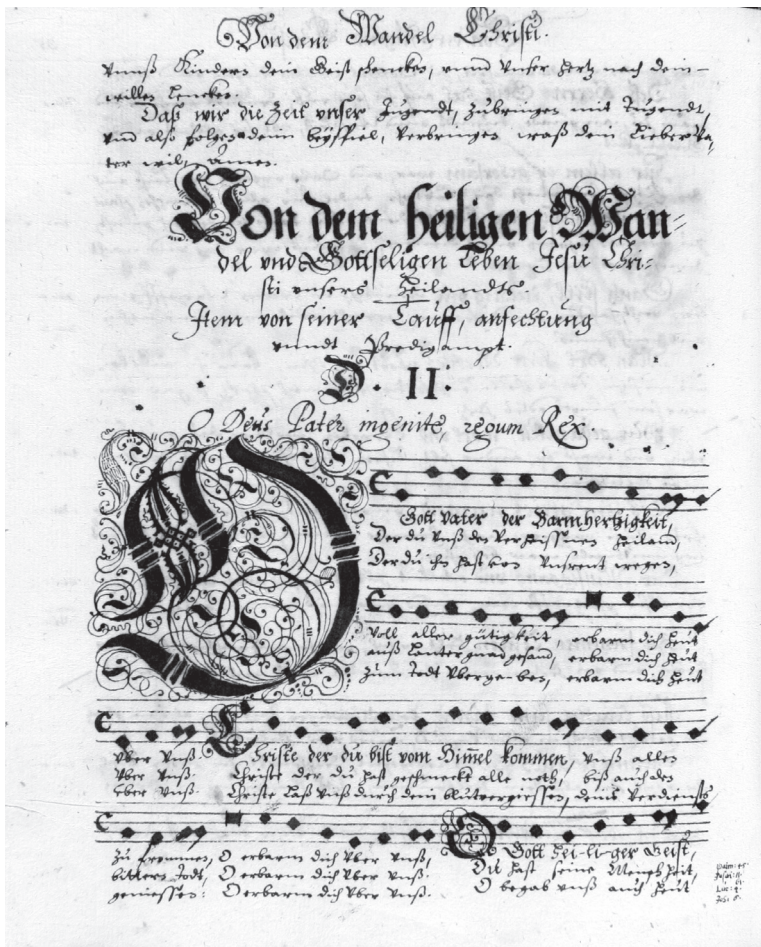 Von dem Wandel Christi.
vnnß Kindern dein Geist schencken, vnnd vnser hertz nach dein-
willen lencken.
Daß wir die Zeit vnser Jugendt, zubringen mit Tugendt,
vnd also folgen deim beyspiel, verbringen waß dein lieber Va-
ter wil, Amen.
Von dem heiligen Wan-
del vnd Gottseligen Leben Jesu Chri-
sti vnsers Heilandts
Item von seiner Tauff, anfechtung
vnndt Predigampt.
II.
O Deus Pater ingenite regum Rex.
O
Gott vater der Barmhertzigkeit,
Der du vnß den verheissenen Heiland,
Der du ihn hast von vnsrent wegen,
voll aller gütigkeit erbarm dich heut
auß lauter gnad gesand, erbarm dich heut
zum Todt vbergeben, erbarm dich heut
vber vnß. Christe der du bist vom Himmel kommen, vnß allen
vber vnß. Christe der du hast geschmeckt alle noth, biß auch den
vber vnß. Christe laß vnß durch dein blutvergiessen, deins verdiensts
zu frommen, O erbarm dich vber vnß, O Gott hei-li-ger Geist,
bittern Todt, O erbarm dich vber vnß. Die hast seine Menschheit,
geniessen: O erbarm dich vber vnß. O begab vnß auch heut